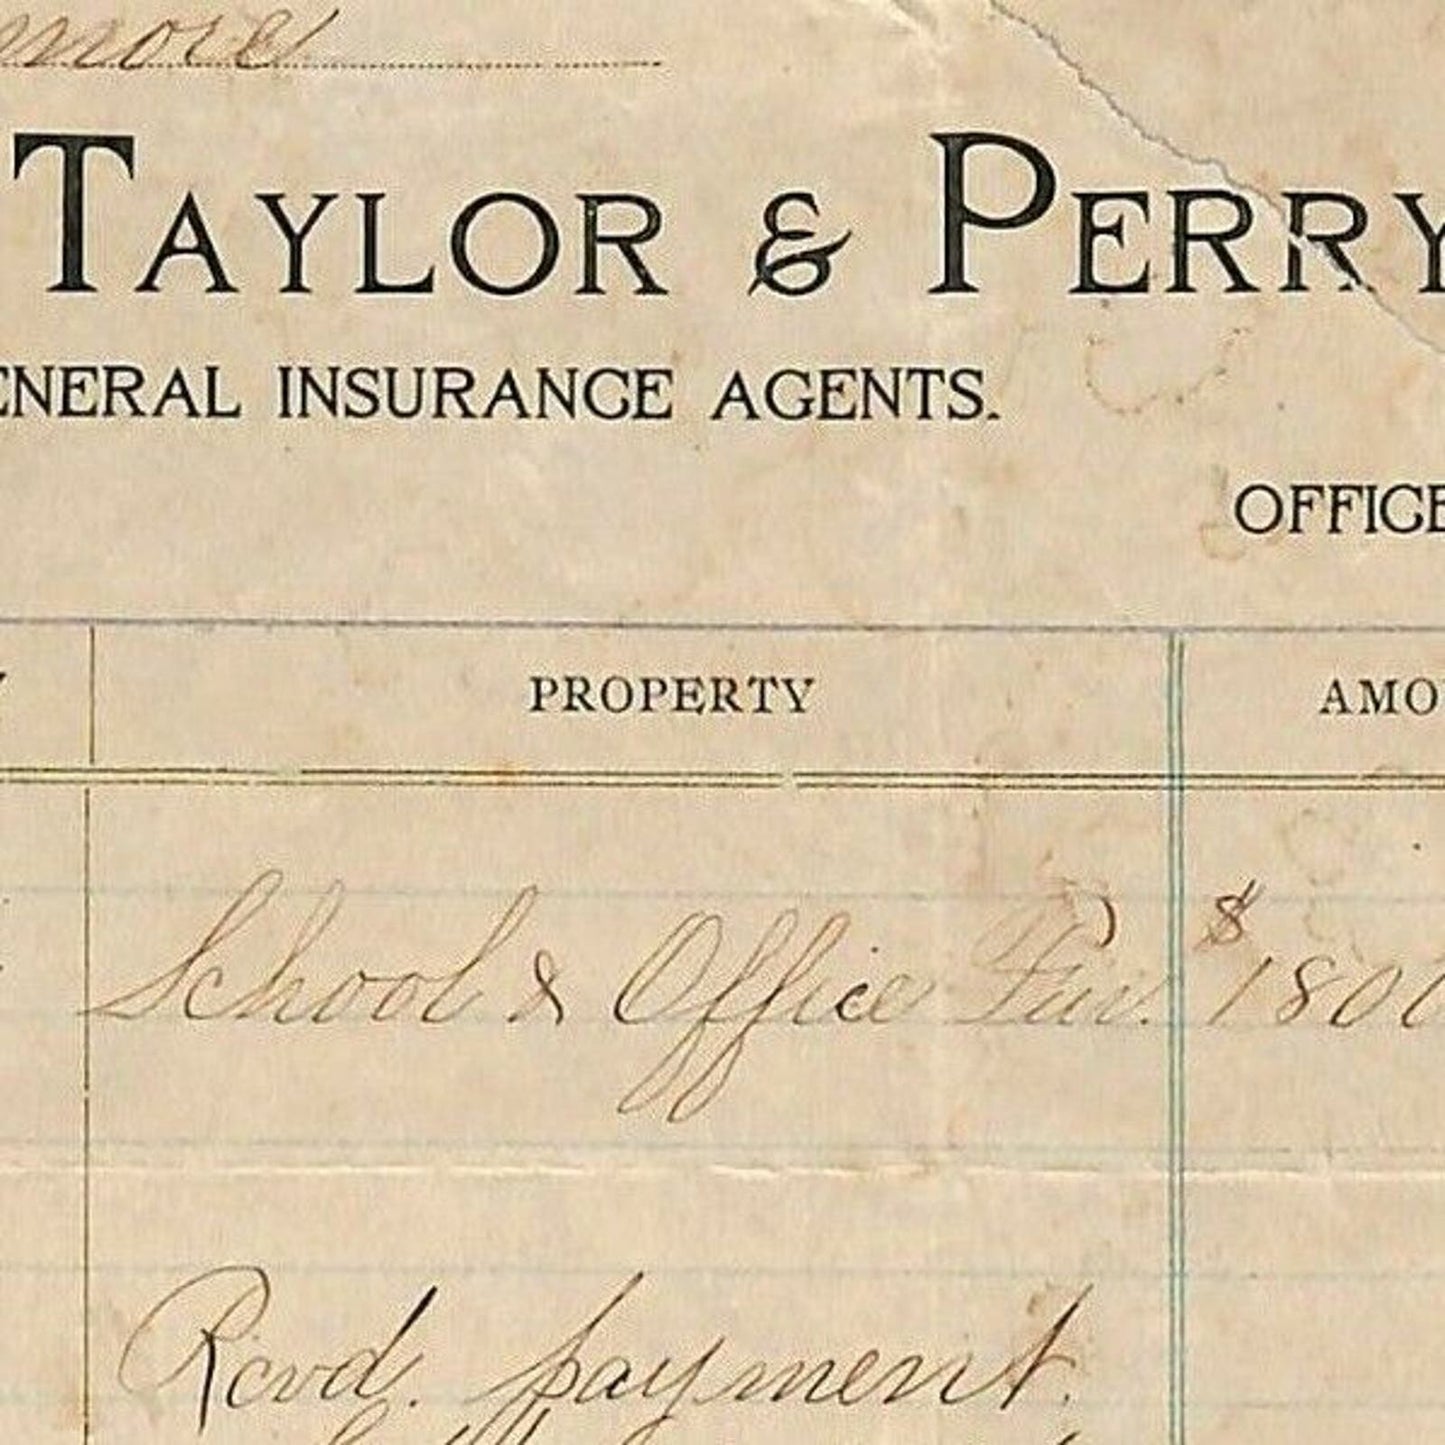 more
TAYLOR & PERRY
ENERAL INSURANCE AGENTS.
OFFICE
PROPERTY AMOU
School & Office Fur. $1800
Rcvd. payment.